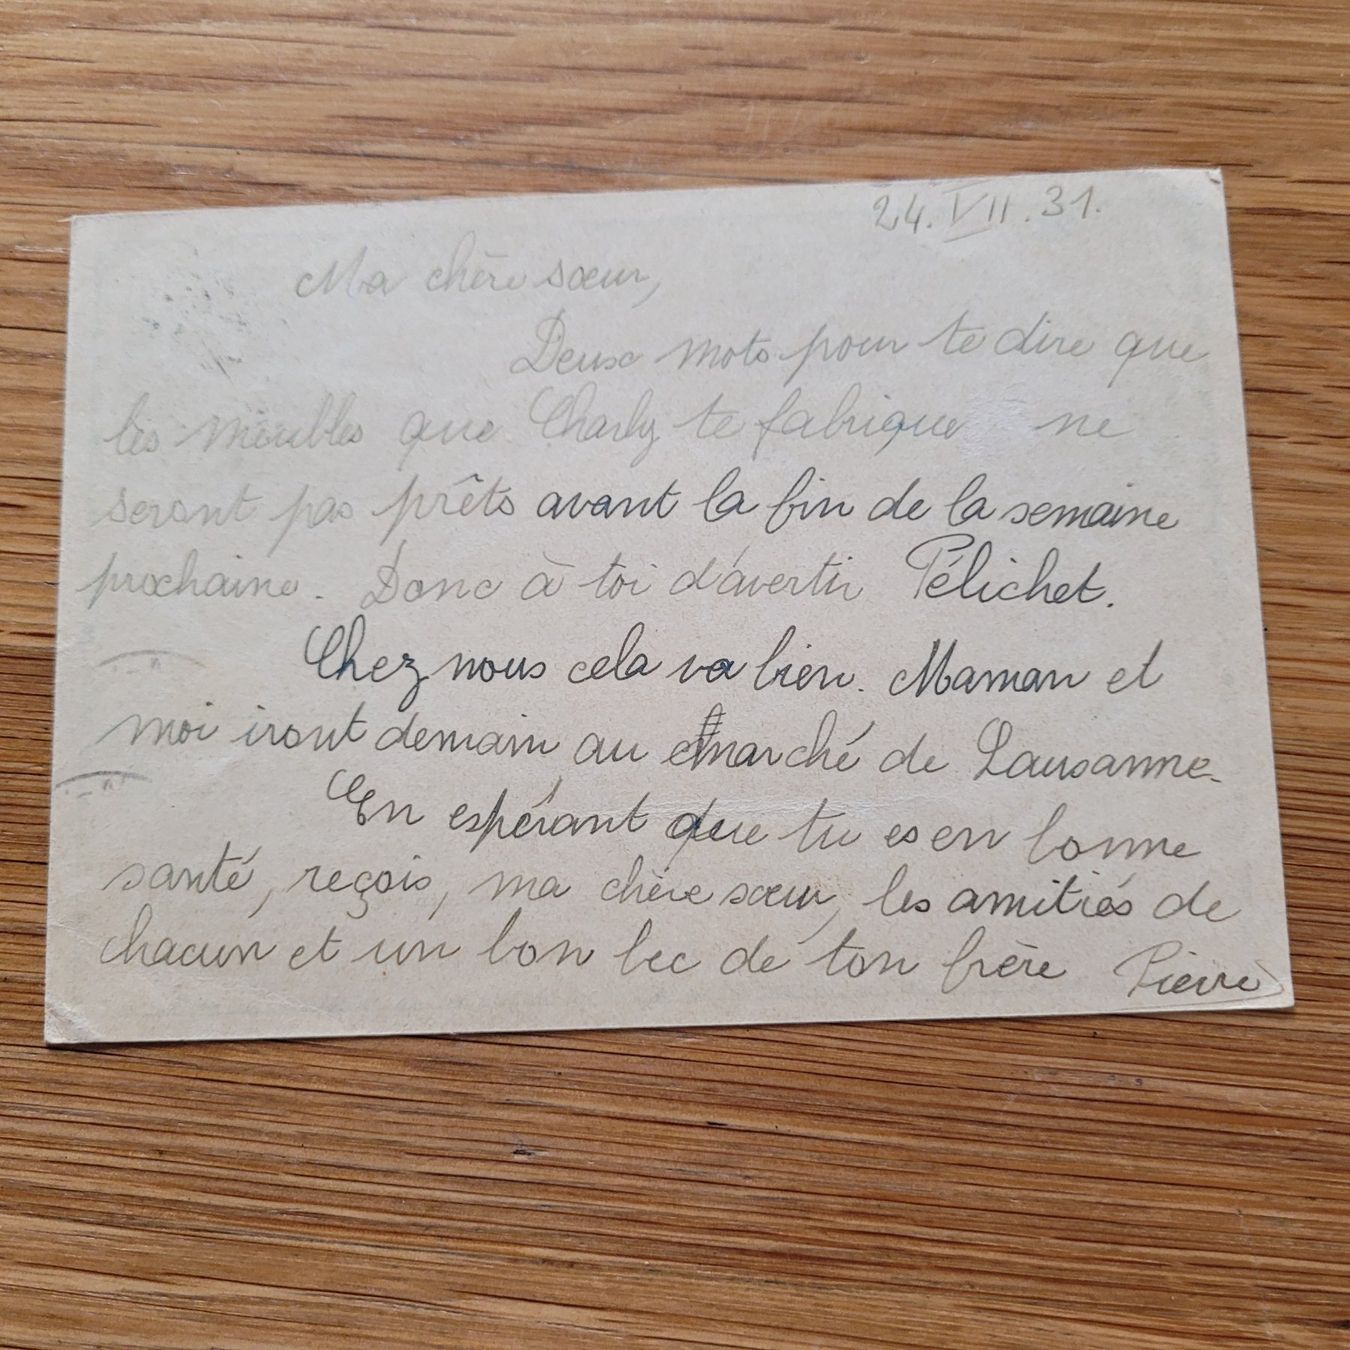 24.VII.31.
Ma chère sœur,
Deux mots pour te dire que
les meubles que Charly te fabrique ne
seront pas prêts avant la fin de la semaine
prochaine. Donc à toi d'avertir Pélichet.
Chez nous cela va bien. Maman et
moi iront demain au marché de Lausanne.
En espérant que tu es en bonne
santé, reçois, ma chère sœur, les amitiés de
chacun et un bon bec de ton frère Pierre